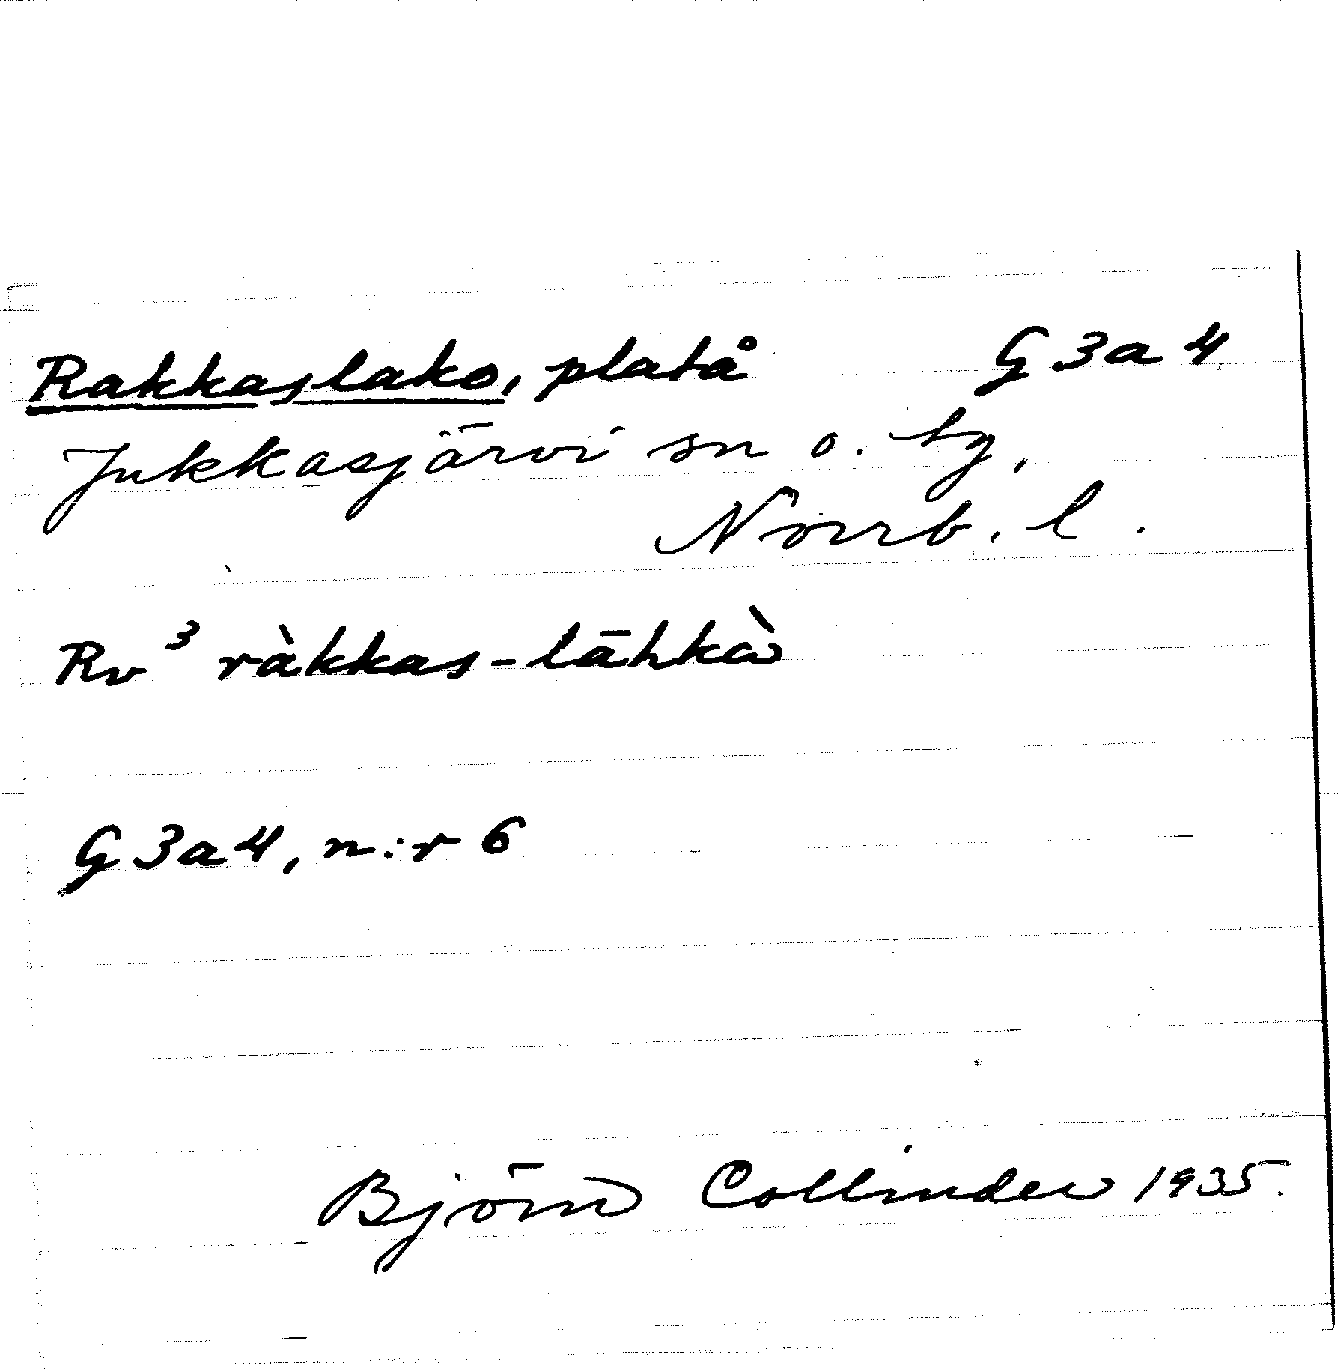 Rakkaslako, platå G3a4
Jukkasjärvi sn o. tg,
Norrb. l.
Rv³ ràkkas-lāhkà
G3a4, n:r 6
Björn Collinder 1935.